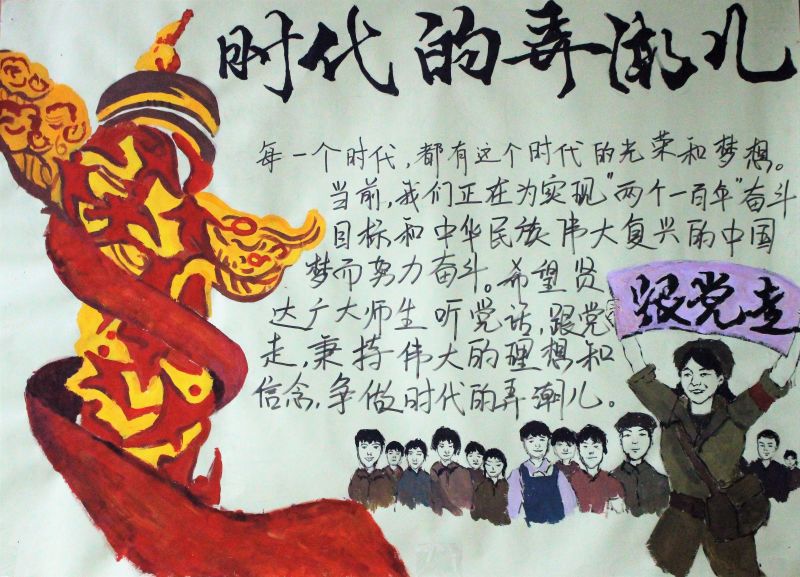 时代的弄潮儿
每一个时代，都有这个时代的光荣和梦想。
当前，我们正在为实现"两个一百年"奋斗
目标和中华民族伟大复兴的中国
梦而努力奋斗。希望贤
达广大师生听党话，跟党
走，秉持伟大的理想和
信念，争做时代的弄潮儿。
跟党走